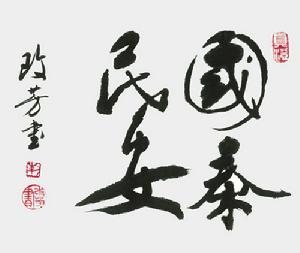 國泰
民安
玫芳书